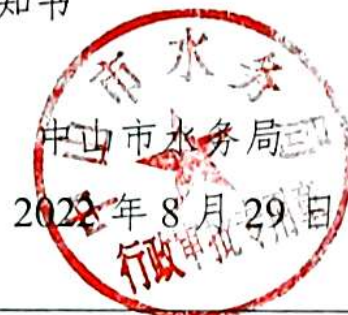 知书
中山市水务局
2022年8月29日
行政审批专用章